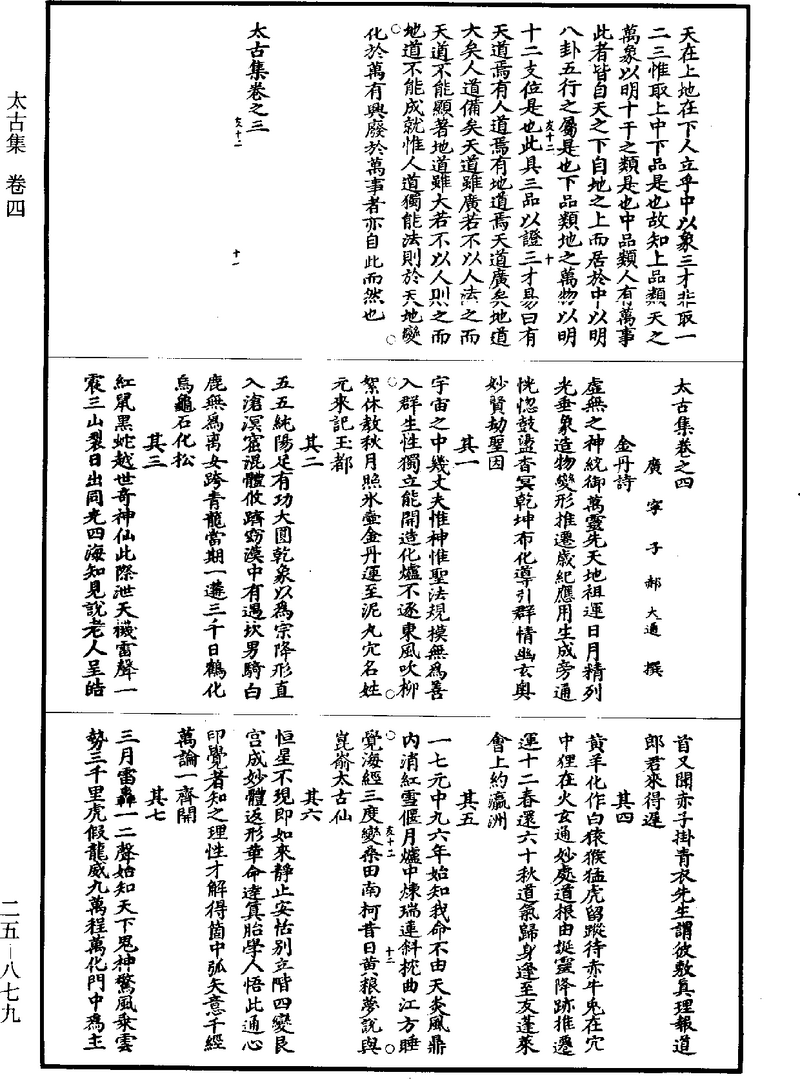 太古集 卷四
二五—八七九
天在上地在下人立乎中以象三才非取一
二三惟取上中下品是也故知上品類天之
萬象以明十干之類是也中品類人有萬事
此者皆自天之下自地之上而居於中以明
八卦五行之屬是也下品類地之萬物以明
十二支位是也此具三品以證三才易曰有
天道焉有人道焉有地道焉天道廣矣地道
大矣人道備矣天道雖廣若不以人法之而
天道不能顯著地道雖大若不以人則之而
地道不能成就惟人道獨能法則於天地變
化於萬有興廢於萬事者亦自此而然也
太古集卷之三
友十二 十
友十二 十一
太古集卷之四
廣寧子郝大通撰
金丹詩
虛無之神統御萬靈先天地祖運日月精列
光垂象造物變形推遷歲紀應用生成旁通
恍惚鼓盪杳冥乾坤布化導引群情幽玄奧
妙賢劫聖因
其一
宇宙之中幾丈夫惟神惟聖法規摸無為善
入群生性獨立能開造化爐不逐東風吹柳
絮休教秋月照氷壺金丹運至泥丸穴名姓
元來記玉都
其二
五五純陽足有功大圓乾象以為宗降形直
入滄溟窟混體攸躋窈漠中有遇坎男騎白
鹿無為离女跨青龍當期一遘三千日鶴化
烏龜石化松
其三
紅䑕黑蛇越世奇神仙此際泄天機雷聲一
震三山裂日出同光四海知見說老人呈皓
首又聞赤子掛青衣先生謂彼敷真理報道
郎君來得遲
其四
黃羊化作白猿猴猛虎留蹤待赤牛兔在穴
中狸在火玄通妙處道根由誕靈降跡推遷
運十二春還六十秋道氣歸身逢至友蓬萊
會上約瀛洲
其五
一七元中九六年始知我命不由天炎風鼎
內消紅雪偃月爐中煉瑞蓮斜枕曲江方睡
覺海經三度變桑田南柯昔日黃粮夢說與
崑崙太古仙
友十二 十二
其六
恒星不現即如來靜止安恬別立階四變艮
宮成妙體返形革命達真胎學人悟此通心
印覺者知之理性才解得箇中弧矢意千經
萬論一齊開
其七
三月雷轟一二聲始知天下鬼神驚風乘雲
勢三千里虎假龍威九萬程萬化門中為主